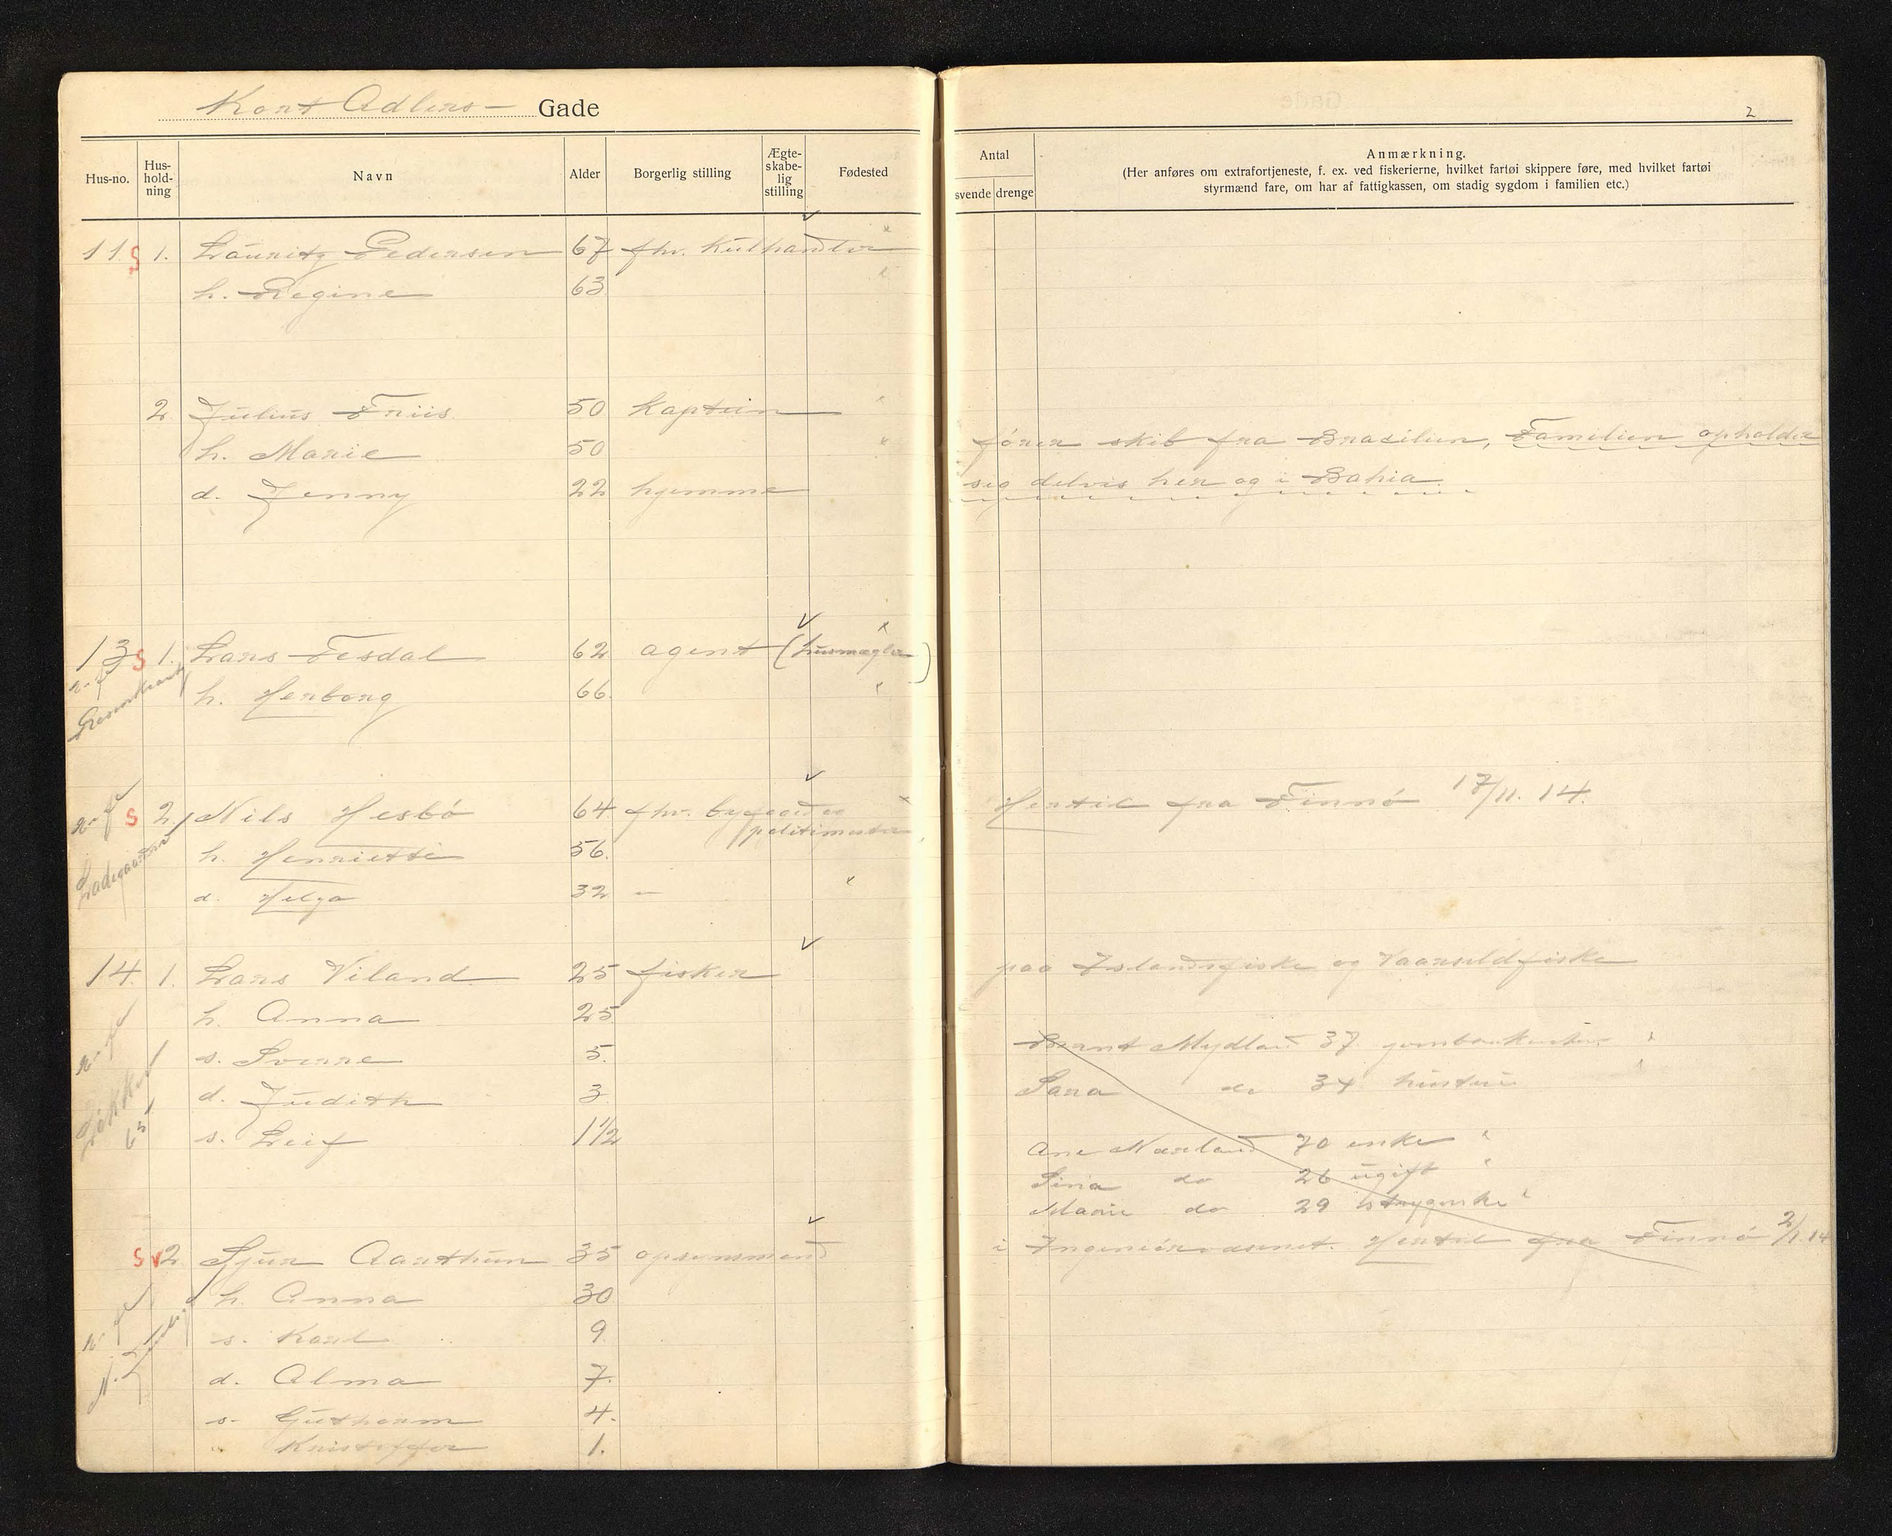 Kort Adlers- Gade
2
Hus-no.
Hus-
hold-
ning
Navn
Alder
Borgerlig stilling
Ægte-
skabe-
lig
stilling
Fødested
Antal
svende drenge
Anmærkning.
(Her anføres om extrafortjeneste, f. ex. ved fiskerierne, hvilket fartøi skippere føre, med hvilket fartøi
styrmænd fare, om har af fattigkassen, om stadig sygdom i familien etc.)
11 S 1. Lauritz Pedersen 67 fhv. Kulhandler
h. Regine 63
2 Julius Friis 50 Kaptein
h. Marie 50 fører skib fra Brasilien, Familien opholder
d. Jenny 22 hjemme sig delvis her og i Bahia.
13 S 1. Lars Tesdal 62 agent (husmægler)
h. Herborg 66.
S 2. Nils Hesbø 64 fhv. byfoged og Hertil fra Finnø 17/11. 14.
politimester
h. Henriette 56.
d. Helga 32 –
14. 1. Lars Viland 25 fisker paa Islandsfiske og Vaarsildfiske
h. Anna 25
s. Sverre 5. Bernt Mydland 37
d. Judith 3. Sara do 34 hustru
s. Leif 1 1/2
65
Ane 70 enke
Sina do 26 ugift
Marie do 29 strygerske
S v 2 Sjur Aarthun 35 opsynsmand i Ingeniørvæsenet. Hertil fra Finnø 2/1. 14
h. Anna 30
s. Karl 9.
d. Alma 7.
s. Guthorm 4.
" Kristoffer 1.